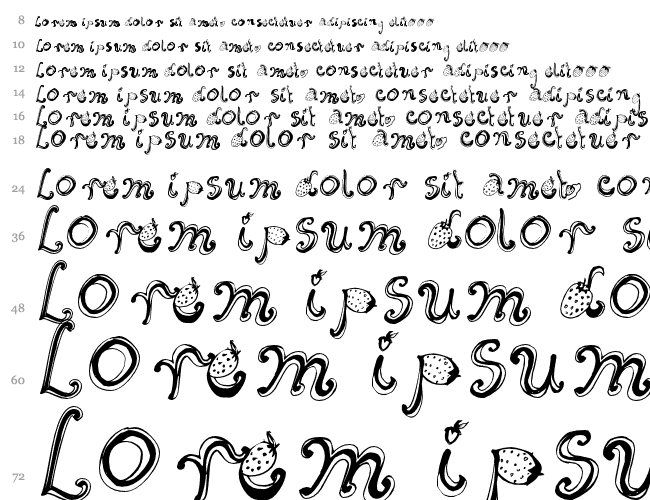 8 Lorem ipsum dolor sit amet, consectetuer adipiscing elit...
10 Lorem ipsum dolor sit amet, consectetuer adipiscing elit...
12 Lorem ipsum dolor sit amet, consectetuer adipiscing elit...
14 Lorem ipsum dolor sit amet, consectetuer adipiscing
16 Lorem ipsum dolor sit amet, consectetuer adipis
18 Lorem ipsum dolor sit amet, consectetuer
24 Lorem ipsum dolor sit amet, con
36 Lorem ipsum dolor s
48 Lorem ipsum do
60 Lorem ipsum
72 Lorem ipsu